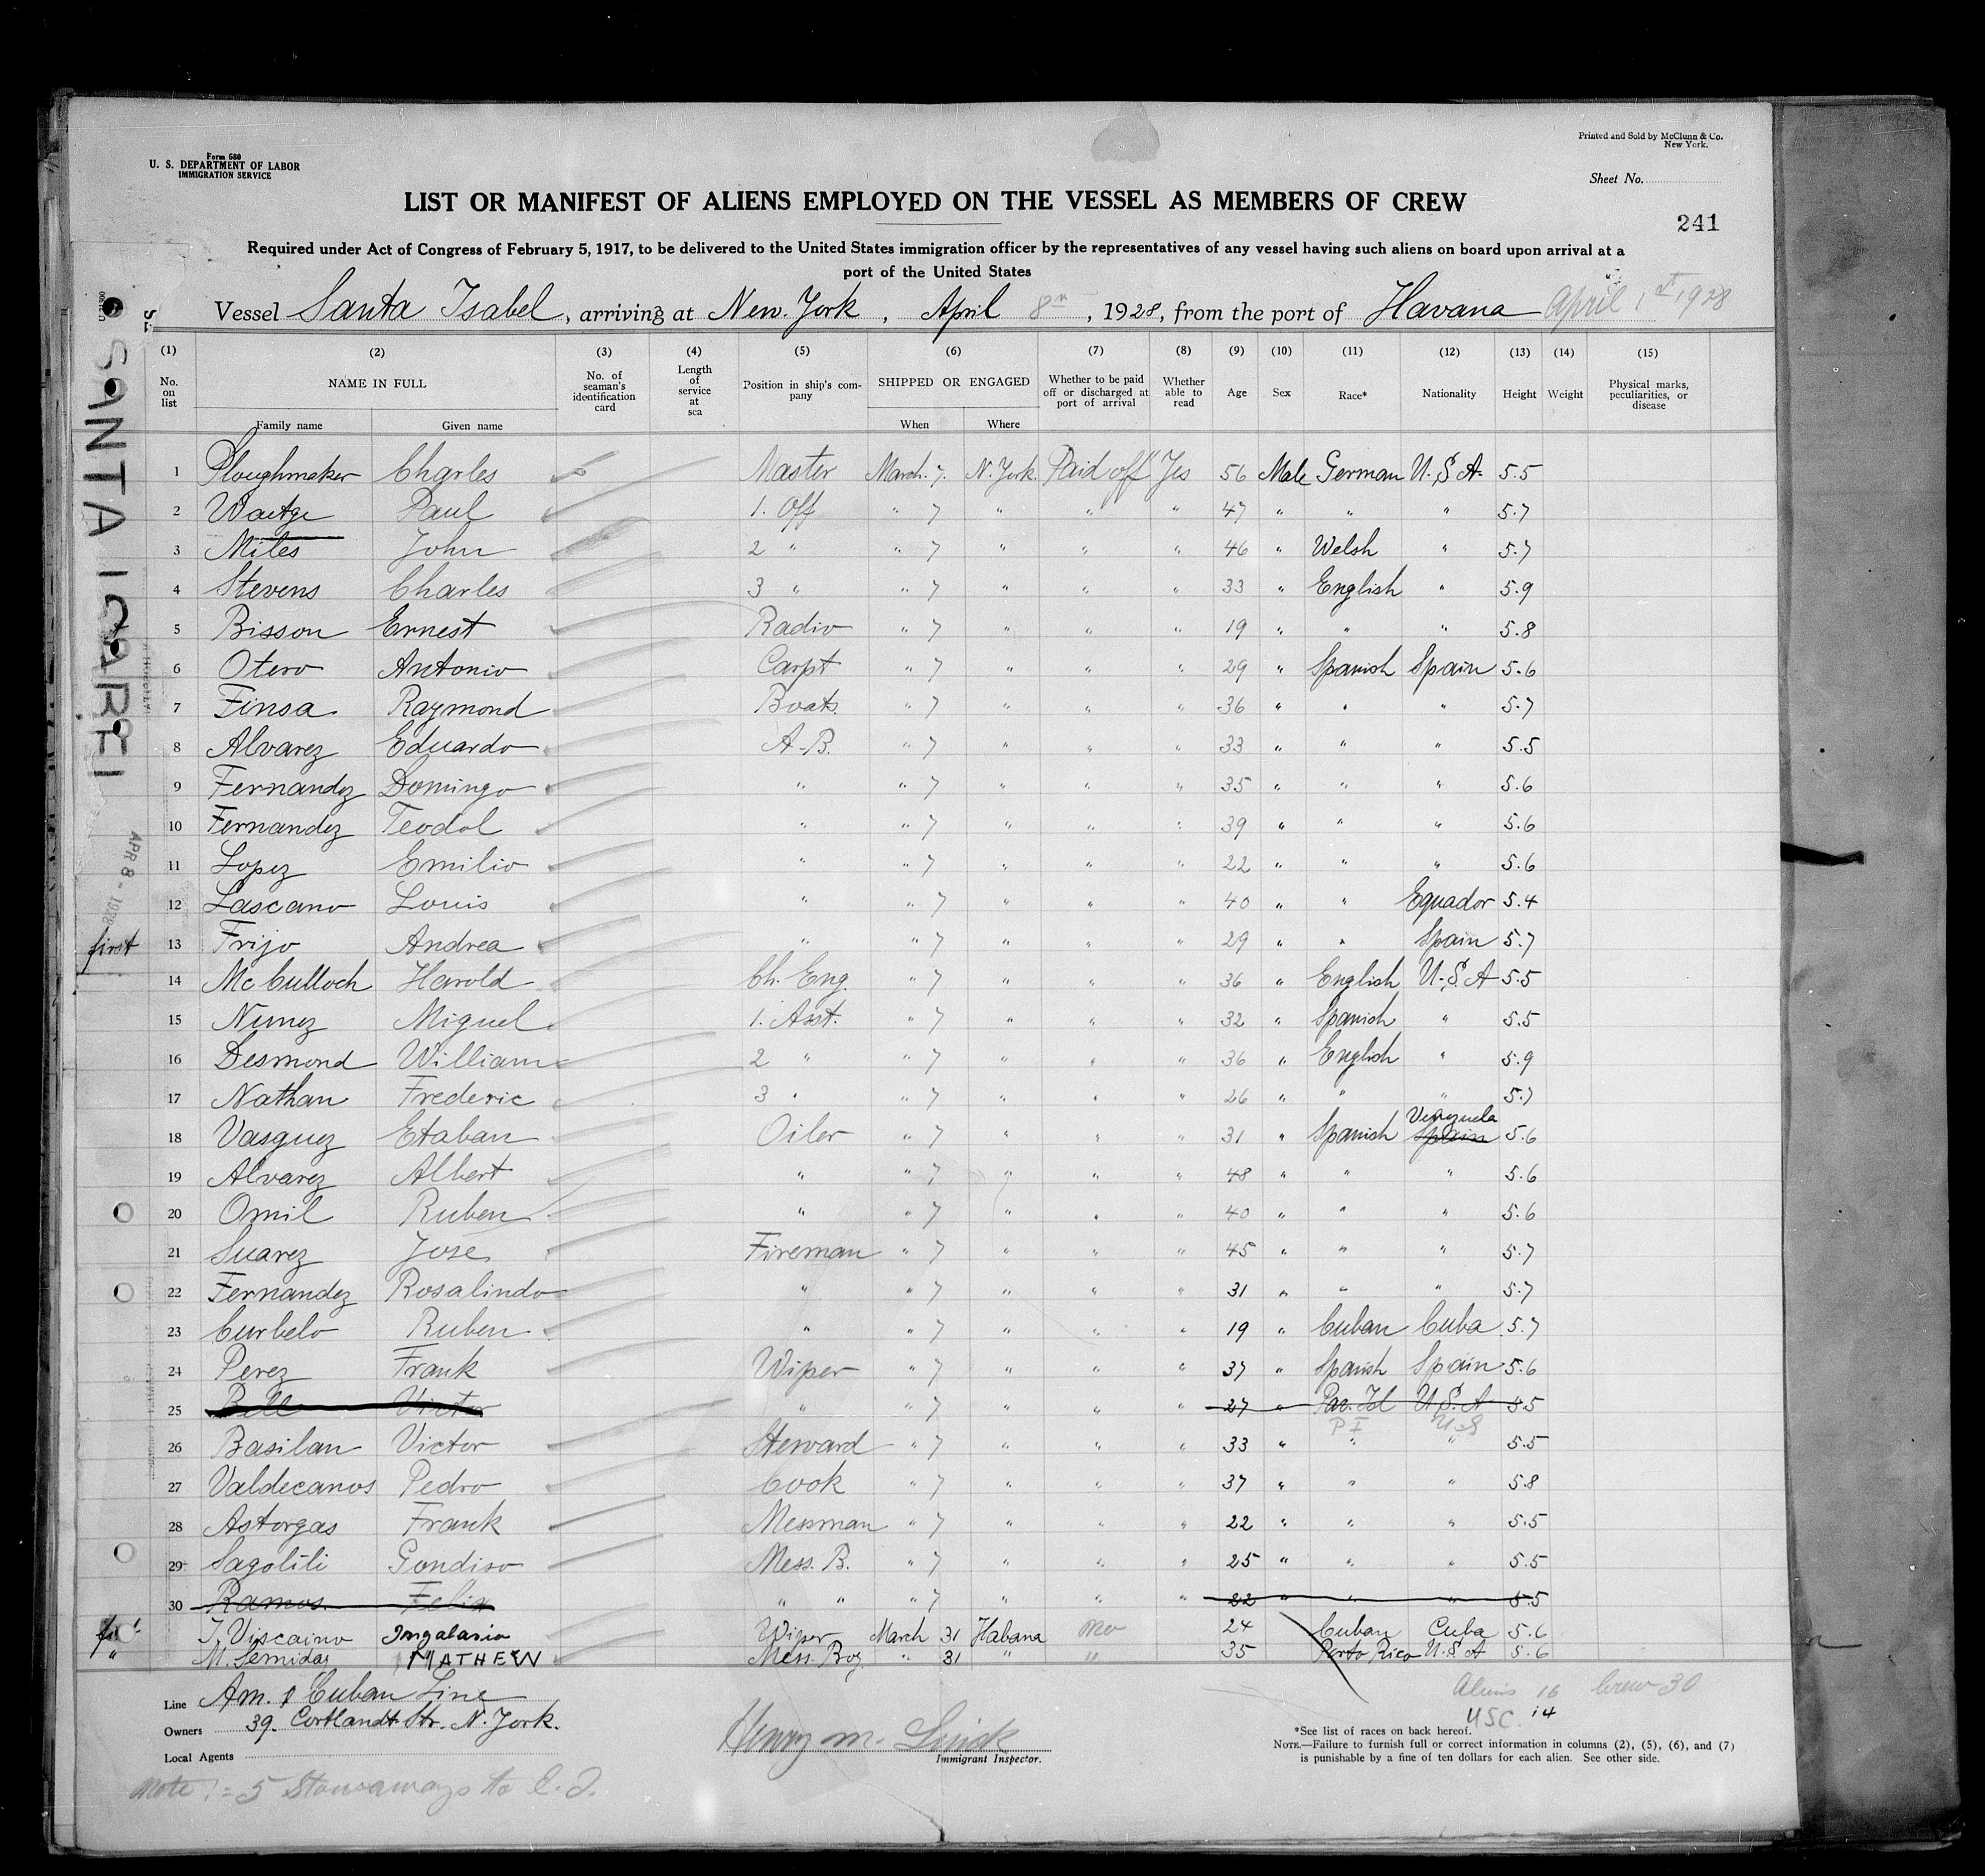 Form 680
U. S. DEPARTMENT OF LABOR
IMMIGRATION SERVICE
Printed and Sold by McClunn & Co.
New York.
Sheet No.
LIST OR MANIFEST OF ALIENS EMPLOYED ON THE VESSEL AS MEMBERS OF CREW
241
Required under Act of Congress of February 5, 1917, to be delivered to the United States immigration officer by the representatives of any vessel having such aliens on board upon arrival at a
port of the United States
Vessel Santa Isabel, arriving at New. York, April 8th, 1928, from the port of Havana April 1st 1928
(1) (2) (3) (4) (5) (6) (7) (8) (9) (10) (11) (12) (13) (14) (15)
No. on list NAME IN FULL No. of seaman's identification card Length of service at sea Position in ship's company SHIPPED OR ENGAGED Whether to be paid off or discharged at port of arrival Whether able to read Age Sex Race* Nationality Height Weight Physical marks, peculiarities, or disease
Family name Given name When Where
1 Ploughmaker Charles Master March. 7. N. York. Paid off Yes 56 Male German U.S.A. 5.5
2 Waetge Paul 1. Off " 7 " " " 47 " " " 5.7
3 Miles John 2 " " 7 " " " 46 " Welsh " 5.7
4 Stevens Charles 3 " " 7 " " " 33 " English " 5.9
5 Bisson Ernest Radio " 7 " " " 19 " " " 5.8
6 Otero Antonio Carpt " 7 " " " 29 " Spanish Spain 5.6
7 Finsa Raymond Boats. " 7 " " " 36 " " " 5.7
8 Alvarez Eduardo A-B. " 7 " " " 33 " " " 5.5
9 Fernandez Domingo " " 7 " " " 35 " " " 5.6
10 Fernandez Teodol " " 7 " " " 39 " " " 5.6
11 Lopez Emilio " " 7 " " " 22 " " " 5.6
12 Lascano Louis " " 7 " " " 40 " " Equador 5.4
first 13 Frijo Andrea " " 7 " " " 29 " " Spain 5.7
14 McCulloch Harold Ch. Eng. " 7 " " " 36 " English U.S.A 5.5
15 Nunez Miguel 1. Asst. " 7 " " " 32 " Spanish " 5.5
16 Desmond William 2 " " 7 " " " 36 " English " 5.9
17 Nathan Frederic 3 " " 7 " " " 26 " " " 5.7
18 Vasquez Etaban Oiler " 7 " " " 31 " Spanish Spain Venezuela 5.6
19 Alvarez Albert " " 7 " " " 48 " " " 5.6
20 Omil Ruben " " 7 " " " 40 " " " 5.6
21 Suarez Jose Fireman " 7 " " " 45 " " " 5.7
22 Fernandez Rosalindo " " 7 " " " 31 " " " 5.7
23 Curbelo Ruben " " 7 " " " 19 " Cuban Cuba 5.7
24 Perez Frank Wiper " 7 " " " 37 " Spanish Spain 5.6
25 Bell Victor " " 7 " " " 27 " U.S.A 5.5
P I U.S
26 Basilan Victor Steward " 7 " " " 33 " " " 5.5
27 Valdecanos Pedro Cook " 7 " " " 37 " " " 5.8
28 Astorgas Frank Messman " 7 " " " 22 " " " 5.5
29 Sagolili Gondiso Mess. B. " 7 " " " 25 " " " 5.5
30 Ramos. Felix " " " 7 " " " 22 " " " 5.5
J. Viscaino Ingalasio Wiper March 31 Habana no 24 Cuban Cuba 5.6
" M. Semidas MATHEW Mess. Boy " 31 " " 35 Porto Rico U.S.A 5.6
Line Am. & Cuban Line
Owners 39. Cortlandt Str. N. York.
Local Agents
Henry M.
Immigrant Inspector.
Aliens 16 Crew 30
USC. 14
*See list of races on back hereof.
NOTE.—Failure to furnish full or correct information in columns (2), (5), (6), and (7)
is punishable by a fine of ten dollars for each alien. See other side.
Note:= 5 Stowaways to E. I.
APR 8 - 1928